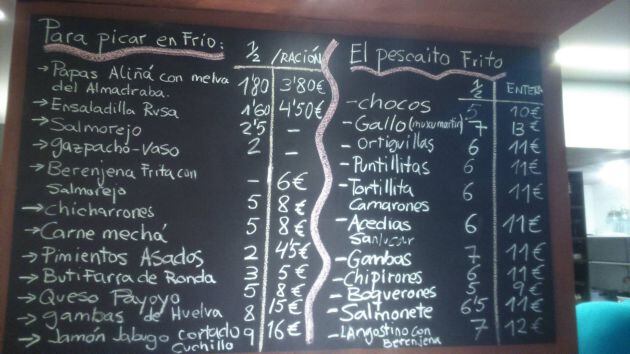 Para picar en Frio: 1/2 /RACIÓN
→ Papas Aliñá con melva
del Almadraba. 1'80 3'80€
→ Ensaladilla Rusa 1'60 4'50€
→ Salmorejo 2'5 -
→ gazpacho-vaso 2 -
→ Berenjena Frita con
Salmorejo - 6€
→ Chicharrones 5 8€
→ Carne mechá 5 8€
→ Pimientos Asados 2 4'5€
→ Butifarra de Ronda 3 5€
→ Queso Payoyo 5 8€
→ gambas de Huelva 8 15€
→ Jamón Jabugo cortado 9 16€
cuchillo
El pescaito Frito
1/2 ENTERA
- chocos 5 10€
- Gallo (muxumartin) 7 13€
- Ortiguillas 6 11€
- Puntillitas 6 11€
- Tortillita 6 11€
Camarones
- Acedias 6 11€
Sanlucar
- Gambas 7 11€
- Chipirones 6 11€
- Boquerones 5 9€
- Salmonete 6'5 11€
- Langostino con 7 12€
Berenjena